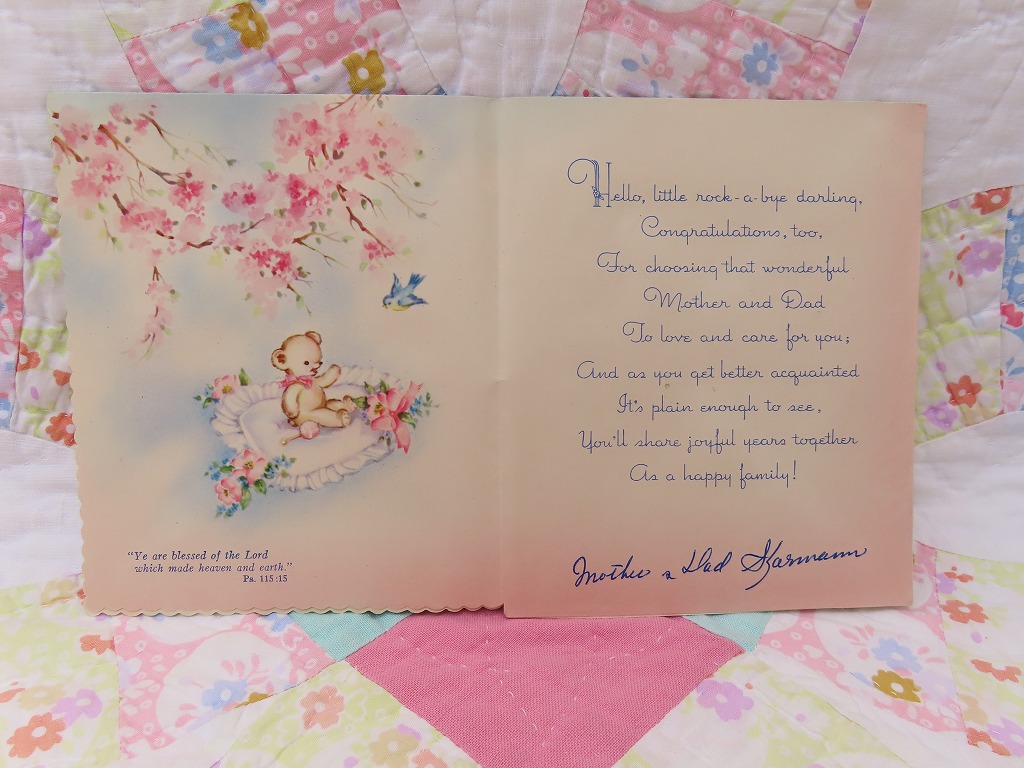 "Ye are blessed of the Lord
which made heaven and earth."
Ps. 115:15
Hello, little rock-a-bye darling,
Congratulations, too,
For choosing that wonderful
Mother and Dad
To love and care for you;
And as you get better acquainted
It's plain enough to see,
You'll share joyful years together
As a happy family!
Mother & Dad